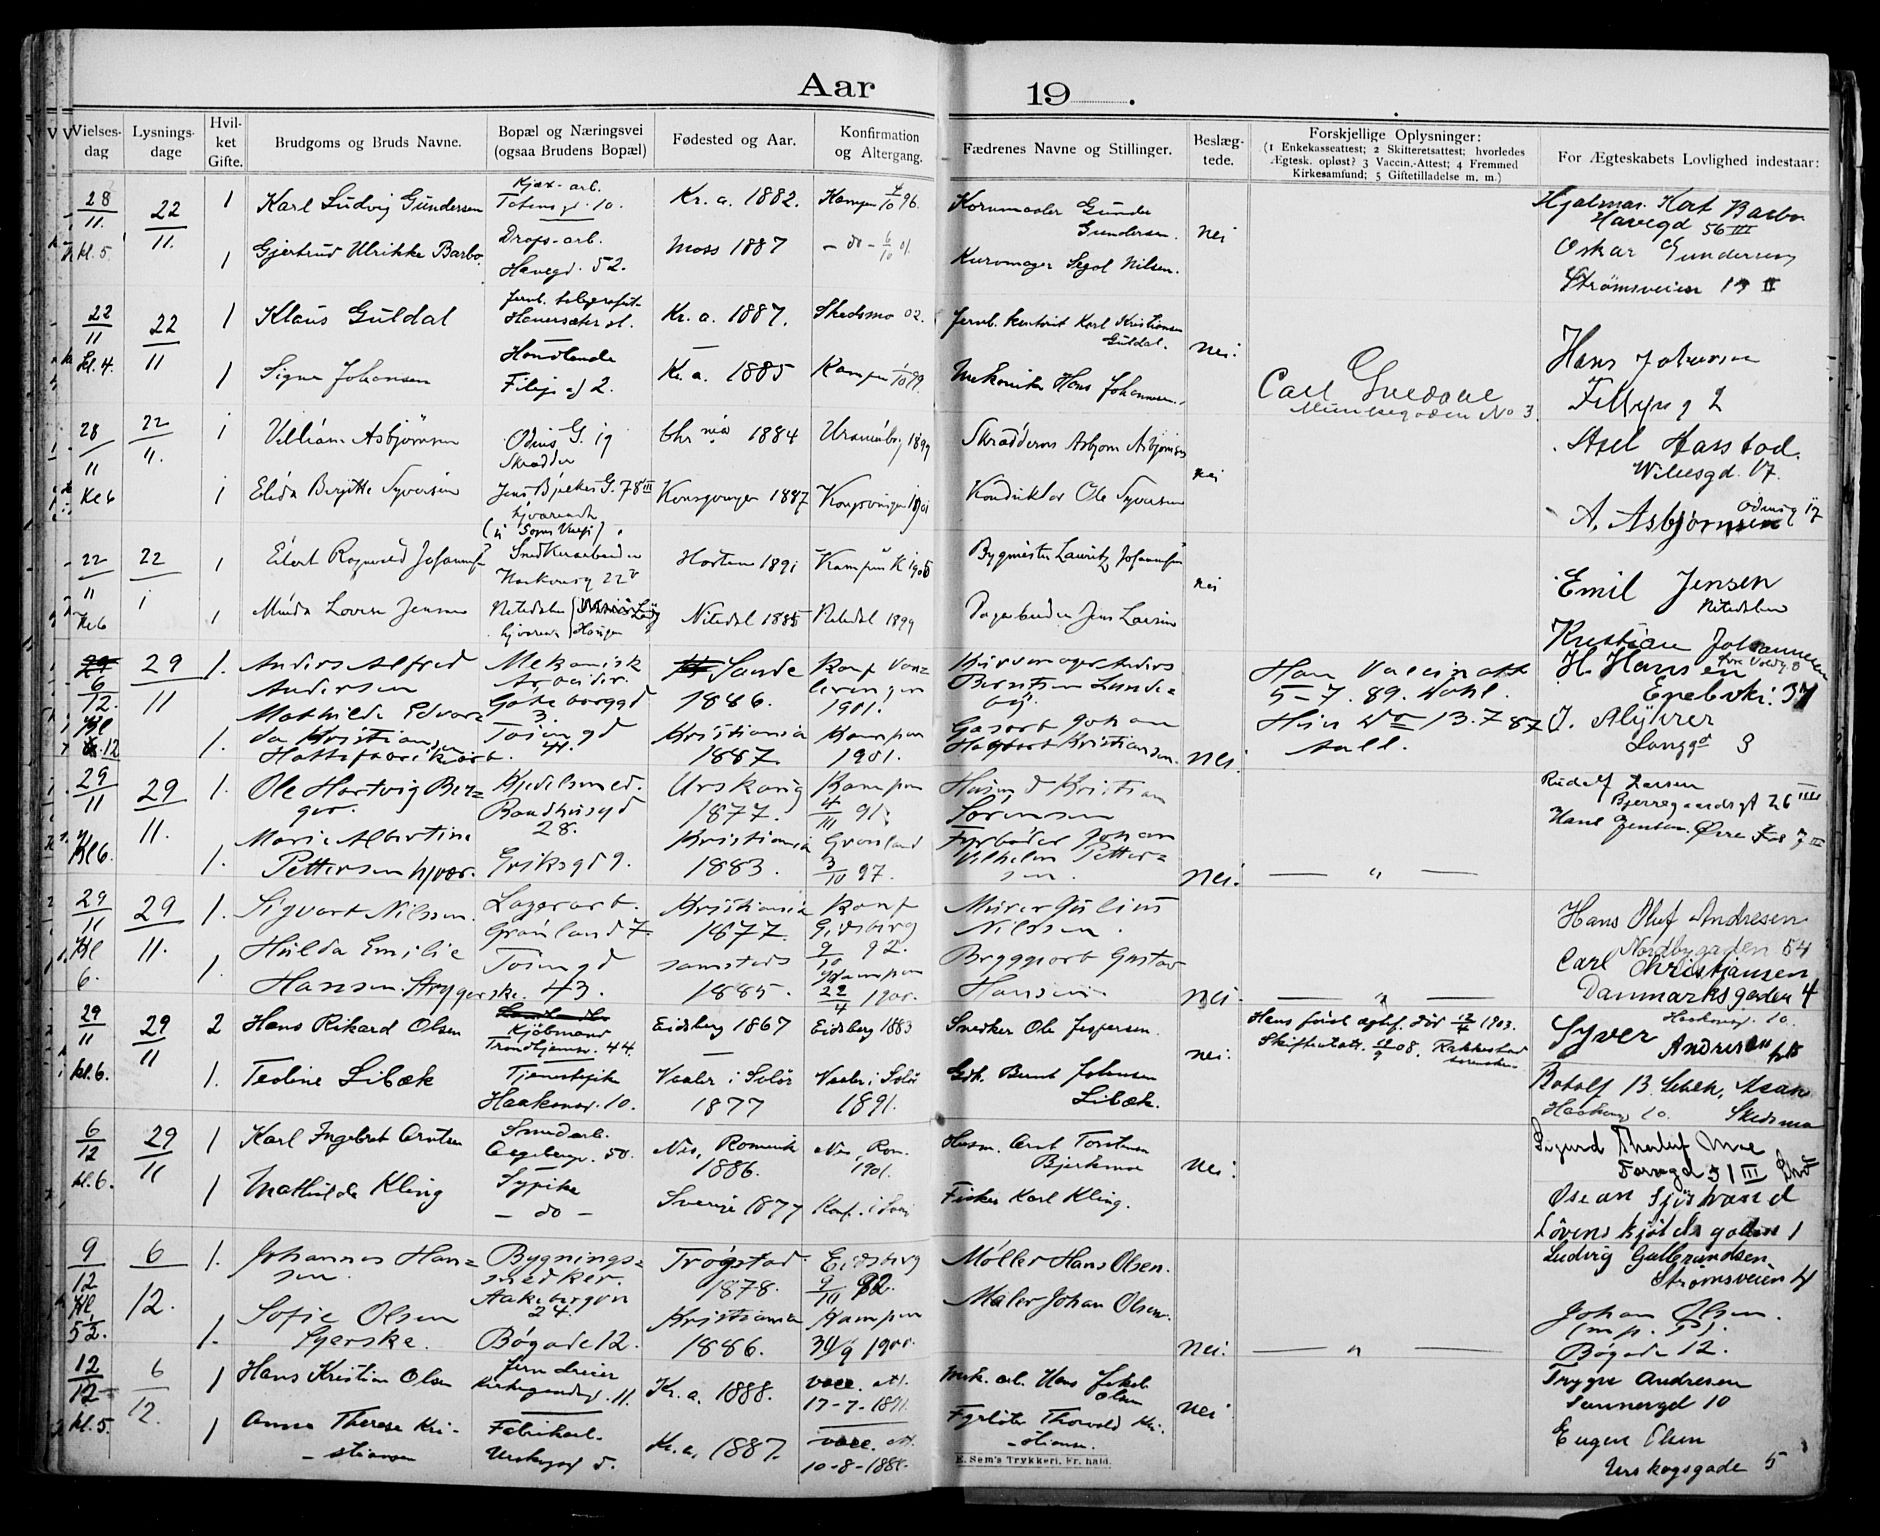 Aar 19 .
Vielses-dag
Lysnings-dage
Hvil-ket Gifte.
Brudgoms og Bruds Navne.
Bopæl og Næringsvei (ogsaa Brudens Bopæl)
Fødested og Aar.
Konfirmation og Altergang.
Fædrenes Navne og Stillinger.
Beslæg-tede.
Forskjellige Oplysninger:
(1 Enkekasseattest; 2 Skifteretsattest; hvorledes
Ægtesk. opløst? 3 Vaccin.-Attest; 4 Fremmed
Kirkesamfund; 5 Giftetilladelse m. m.)
For Ægteskabets Lovlighed indestaar:
28/11. 22/11. 1 Karl Ludvig Gundersen Kjøx-arb. Totensgd. 10. Kr.a. 1882. Kampen 4/10 96. Kornmaaler Gunder Gundersen. nei
kl. 5. 1 Gjertrud Ulrikke Barbo. Drops-arb. Havegd. 52. Moss 1887 -do- 6/10 01. Kurvmager Segol Nilsen.
Hjalmar Kort Barbo
Havegd 56 III
Oskar Gundersen
Strømsveien 19 II
22/11 22/11 1 Klaus Guldal Jernb. telegrafist Kr.a. 1887. Skedsmo 02. Jernb. kontorist Karl Kristiansen Guldal. nei.
kl. 4. 1 Signe Johansen Filip. g 2. Kr.a. 1885 Kampen 1/10 99. Mekaniker Hans Johannesen.
Carl Guldal
Munkegaden No 3
Hans Johansen
Fillipsg 2
28/11 22/11. 1 Villiam Asbjørnsen Odins G. 19 Skrædder Chr nia 1884 Uranienborg 1899 Skrædderm Asbjørn Asbjørnsen nei
Kl 6 1 Elida Birgitte Syversen Jens Bjelkes G. 78 III hjværende Kongsvinger 1887 Kongsvinger 1901 Konduktør Ole Syversen
Axel Harstad.
Wilsesgd. 17.
A. Asbjørnsen Odinsg 19
22/11 22/11 1 Eilert Ragnvald Johannesen Snedkerarbeider Haakonsg 22 Horten 1891 Kampen K 1905 Bygmester Lauritz Johannesen nei
Kl 6 1 Minda Lovise Jensen Nitedalen hjværende Haugen Nitedal 1885 Nitedal 1899 Jens Larsen
Emil Jensen
Nitedalen
Kristian Johannesen
29 6/12. 29/11 1. Anders Alfred Andersen Mekanisk Arbeider. Gøteborggd 3. Sande 1886. Konf 1901. Kurvmager Anders Berntsen Lunde=
Kl 12 1. Mathilde Edvar=da Kristiansen Hattefabrikarb. Tøiengd 41. Kristiania 1887. Kampen 1901. Gasarb Johan Hagbart Kristiansen. nei.
Han Vaccin att
5-7.89. Dahl.
Hun Do 13.7 87
H. Hansen
Enebakv. 37
Langgd 3
29/11 29/11. 1. Ole Hartvig Ber=ger. Kjedelsmed. Raadhusgd 28. Urskoug 1877. Kampen 4/10 91. Husmd Kristian Sørensen
Kl 6. 1. Marie Albertine Pettersen hjvær. Eriksgd 9. Kristiania 1883. Grønland 3/10 97. Fyrbøder Johan Vilhelm Petter=sen. nei. — " —
Rudolf Larsen
Bjerregaardsgt 26 III
Hans Jensen. Øvre Fos 7 III
29/11 29/11. 1. Sigvart Nilssen. Lagerarb. Grønland 7. Kristiania 1877. Konf Eidsberg 9/10 92. Murer Julius Nilssen.
Kl 6. 1. Hulda Emilie Hansen. Strygerske. Tøiengd 43. samsteds 1885. Kampen 22/4 1900. Bryggarb Gustav Hansen nei. — " —
Hans Oluf Andresen
Nordbygaden 54
Carl Christjansen
Danmarks gaden 4
29/11 29/11 2 Hans Rikard Olsen Kjøbmand Trondhjemsv. 44. Eidsberg 1867 Eidsberg 1883 Snedker Ole Jespersen. nei.
kl. 6. 1. Teoline Libæk Tjenestepike Haakonsgd. 10. Vaaler i Solør 1877 Vaaler i Solør 1891. Gbk. Bernt Johnsen Libæk.
Hans første ægtef. død 12/4 1903.
Skifteratt. 08. Rakkestad sorenskr.
Haakonsgd. 10.
Syver Andresen
Rotolf B. Libæk,
Haakonsg 10. Skedsmo
6/12 29/11 1 Karl Ingebret Arntsen Smedarb. Aagebergv. 50. Nes, Romerik 1886. Nes, Rom. 1901. Husm. Arnt Torstensen Bjerkemoe nei.
kl. 6. 1 Mathilde Kling Sypike -do- Sverige 1877 Konf. i Sve Fisker Karl Kling.
Sigurd Thorleif Moe
51 III
Oscar Sjøstrand
Løvenskjolds gaden 1
9/12 6/12. 1. Johannes Han=sen. Bygnings=snedker. Aakebergvn 24. Trøgstad 1878. Eidsberg 9/10 92. Møller Hans Olsen.
Kl 5½. 1. Sofie Olsen Syerske. Bøgade 12. Kristiania 1886. Kampen 30/9 1900. Maler Johan Olsen. nei. — " —
Ludvig Gulbrandsen
Strømsveien 4
Johan Olsen.
(m. p. P).
Bøgade 12.
12/12 6/12. 1 Hans Kristian Olsen Jerndreier Kirkegaardsgd. 11. Kr.a. 1888. vacc. att. 17-7-1891. Mek. arb. Hans Jakob Olsen nei
kl. 5. 1 Anna Therese Kri-stiansen Fabrikarb. Urskoggd 5. Kr.a. 1887. vacc. att. 10-8-1888. Fyrbøter Thorvald Kri-stiansen.
Trygve Andresen
Sannergd 10
Eugen Olsen
Urskogsgade 5
E. Sem's Trykkeri, Fr.hald.